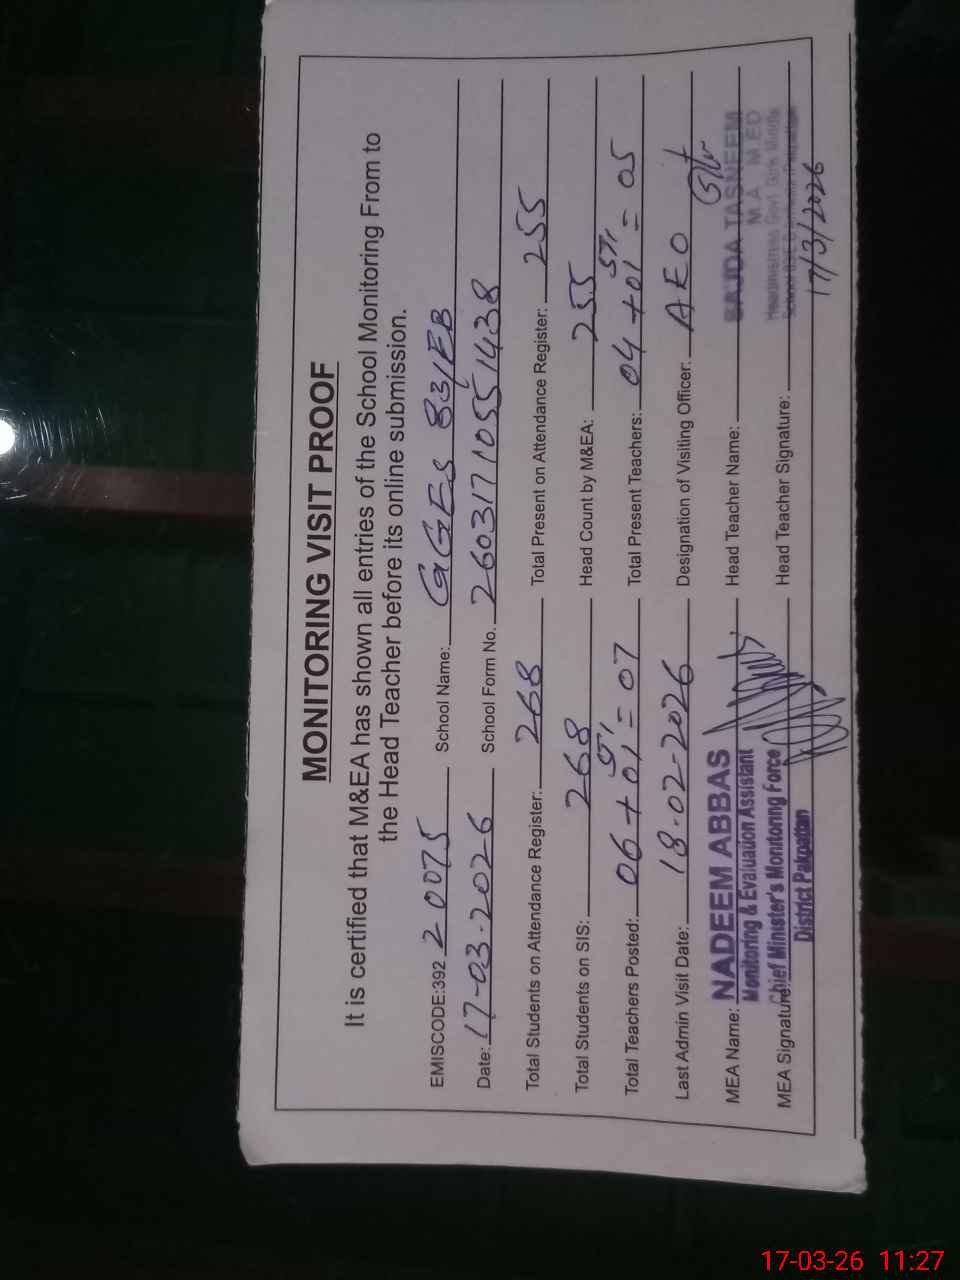 MONITORING VISIT PROOF
It is certified that M&EA has shown all entries of the School Monitoring From to
the Head Teacher before its online submission.
EMISCODE:392 20075 School Name: GGES 83/EB
Date: 17-03-2026 School Form No. 26031710551438
Total Students on Attendance Register: 268 Total Present on Attendance Register: 255
Total Students on SIS: 268 Head Count by M&EA: 255
Total Teachers Posted: 06 + 01 STI = 07 Total Present Teachers: 04 + 01 STI = 05
Last Admin Visit Date: 18-02-2026 Designation of Visiting Officer: AEO
MEA Name: NADEEM ABBAS Head Teacher Name: SAJDA TASNEEM
Monitoring & Evaluation Assistant M.A M.ED
MEA Signature: Chief Minister's Monitoring Force Head Teacher Signature: Headmistress Govt. Girls
District Pakpattan School
17/3/2026
17-03-26 11:27